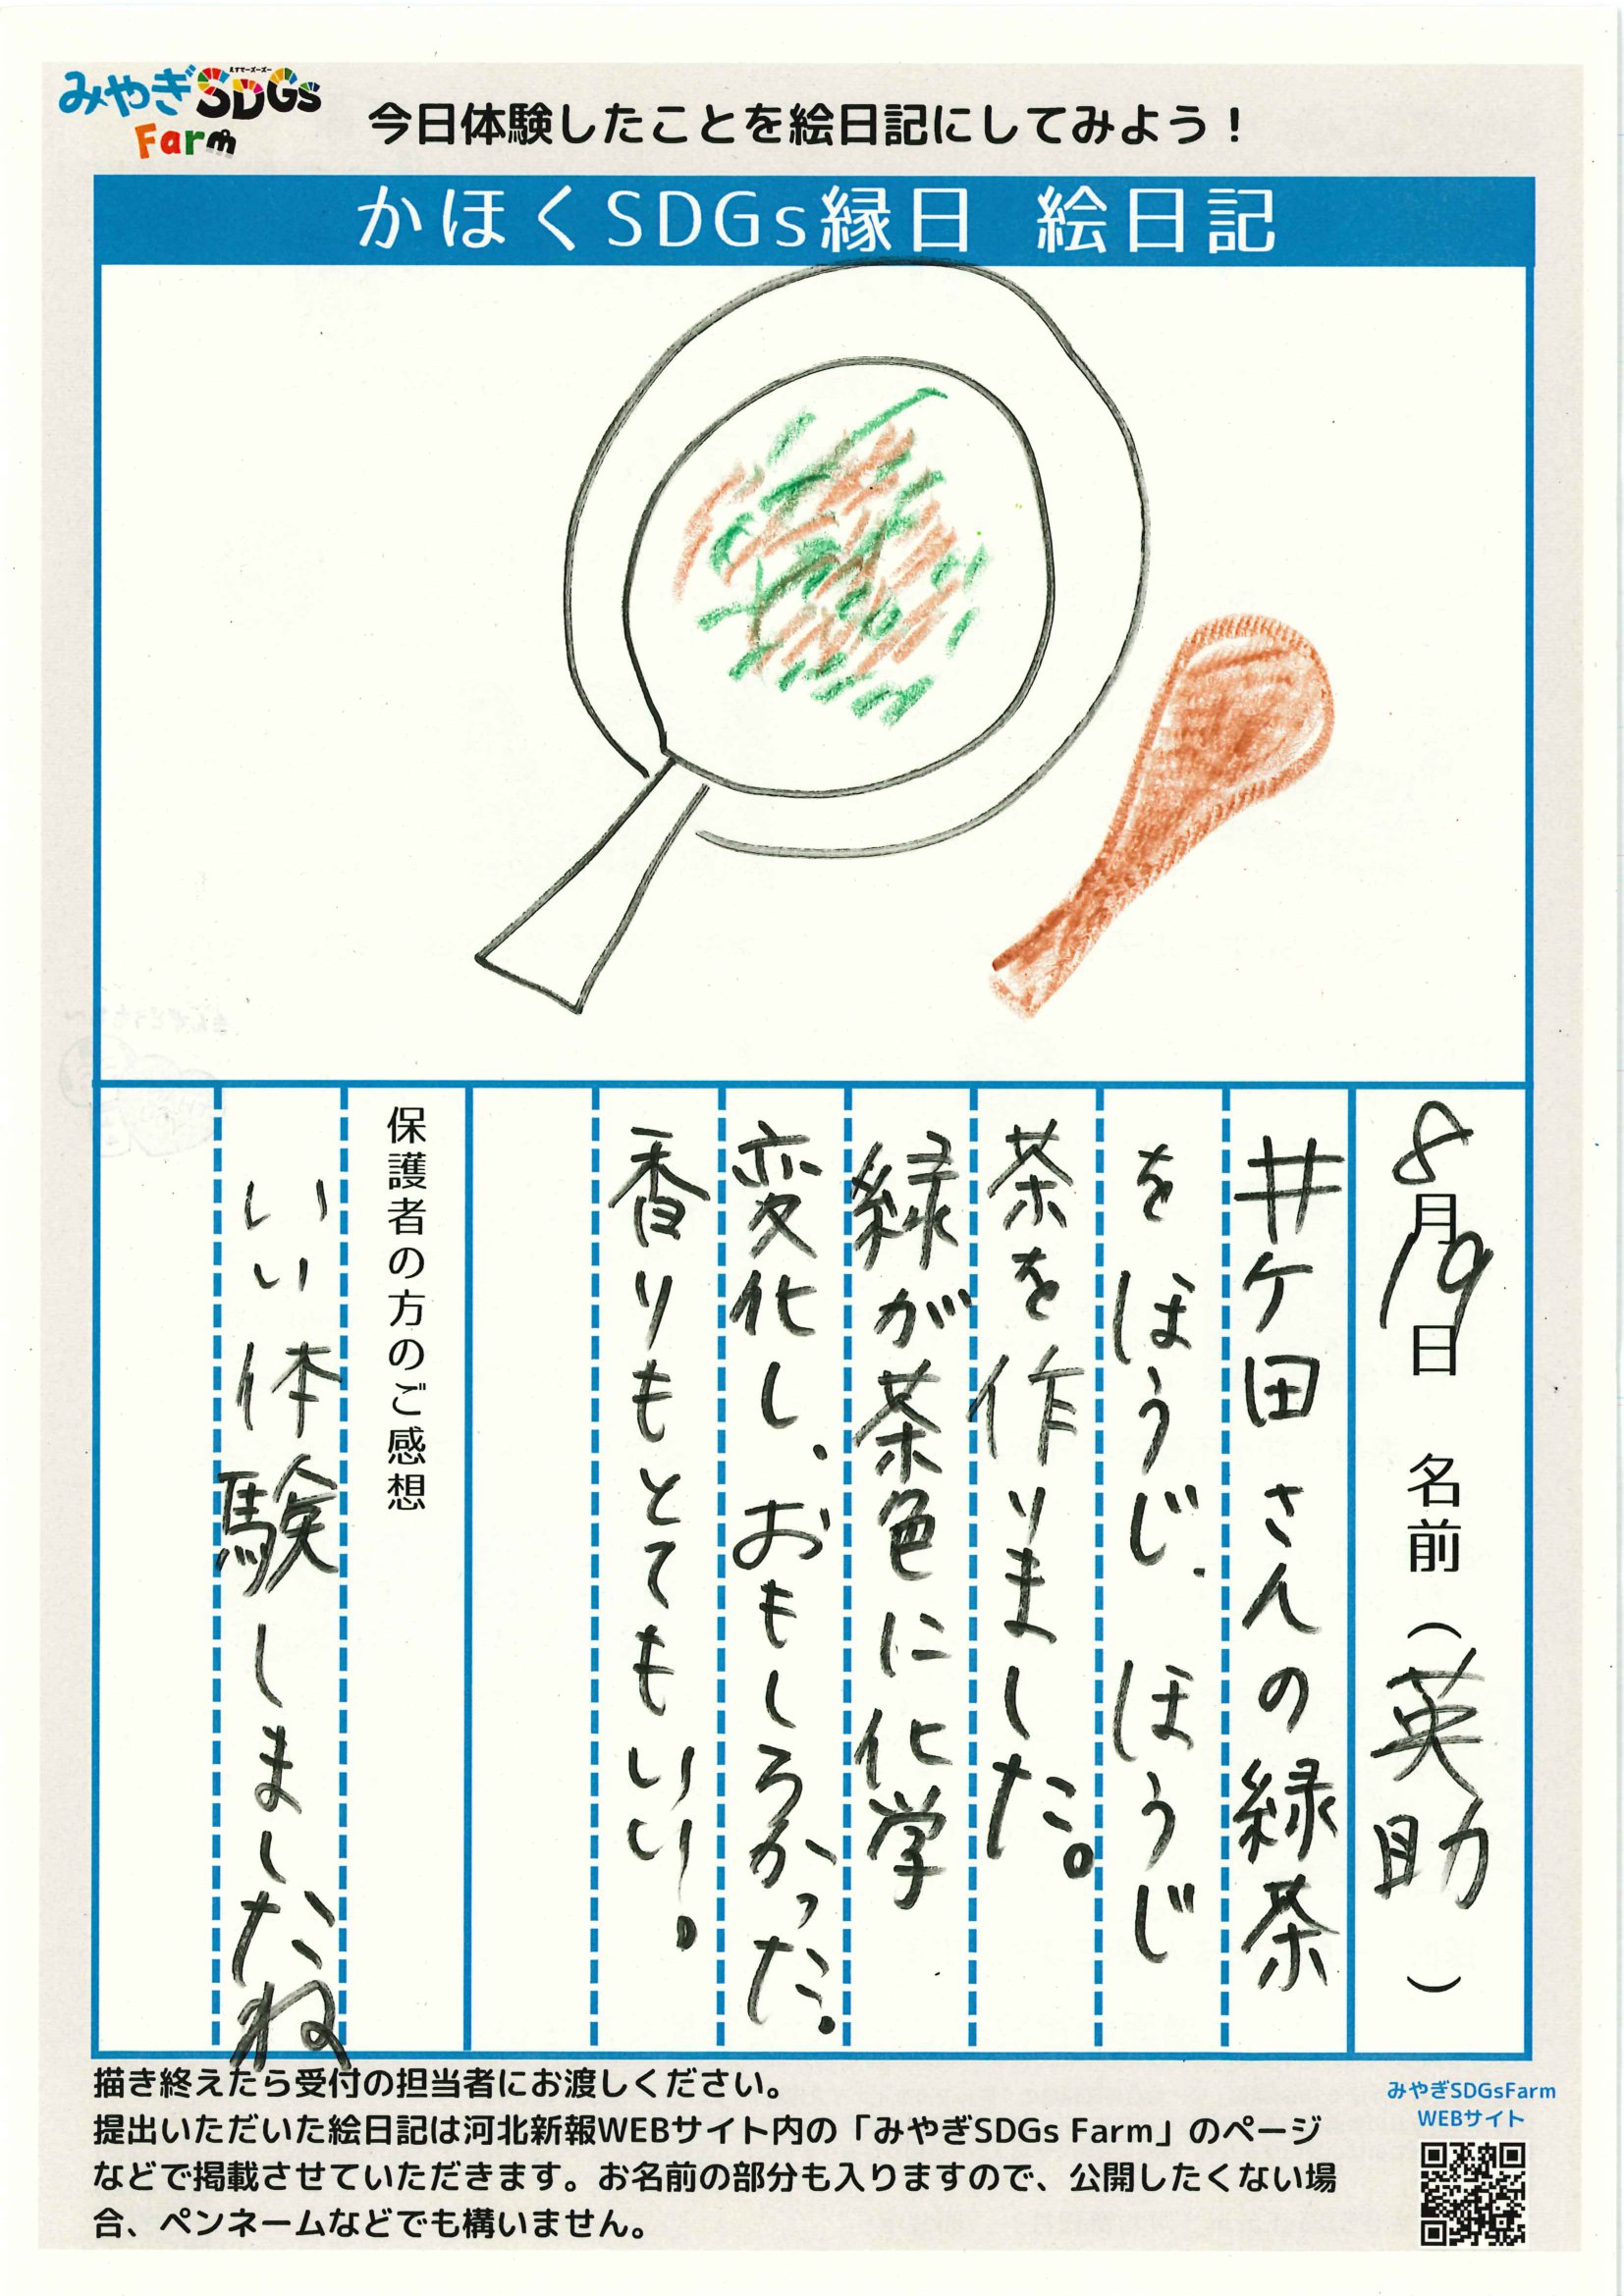 みやぎSDGs
えすでーずーず
Farm
今日体験したことを絵日記にしてみよう！
かほくSDGs縁日 絵日記
8月19日 名前（英助）
井ケ田さんの緑茶
をほうじ、ほうじ
茶を作りました。
緑が茶色に化学
変化し、おもしろかった。
香りもとてもいい。
保護者の方のご感想
いい体験しましたね
描き終えたら受付の担当者にお渡しください。
提出いただいた絵日記は河北新報WEBサイト内の「みやぎSDGs Farm」のページ
などで掲載させていただきます。お名前の部分も入りますので、公開したくない場
合、ペンネームなどでも構いません。
みやぎSDGsFarm
WEBサイト